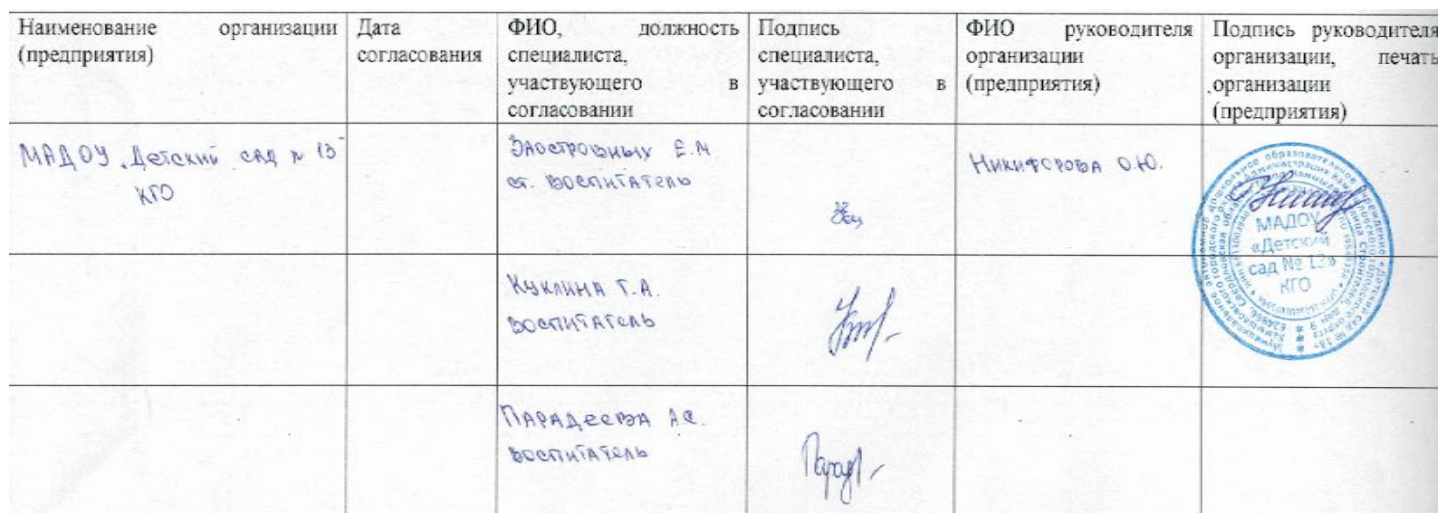 Наименование организации (предприятия)
Дата согласования
ФИО, должность специалиста, участвующего в согласовании
Подпись специалиста, участвующего в согласовании
ФИО руководителя организации (предприятия)
Подпись руководителя организации, печать организации (предприятия)
МАДОУ „Детский сад № 13"
КГО
Заостровных Е.М
ст. воспитатель
Никифорова О.Ю.
МАДОУ
«Детский
сад № 13»
КГО
Куклина Т.А.
воспитатель
Парадеева А.С.
воспитатель